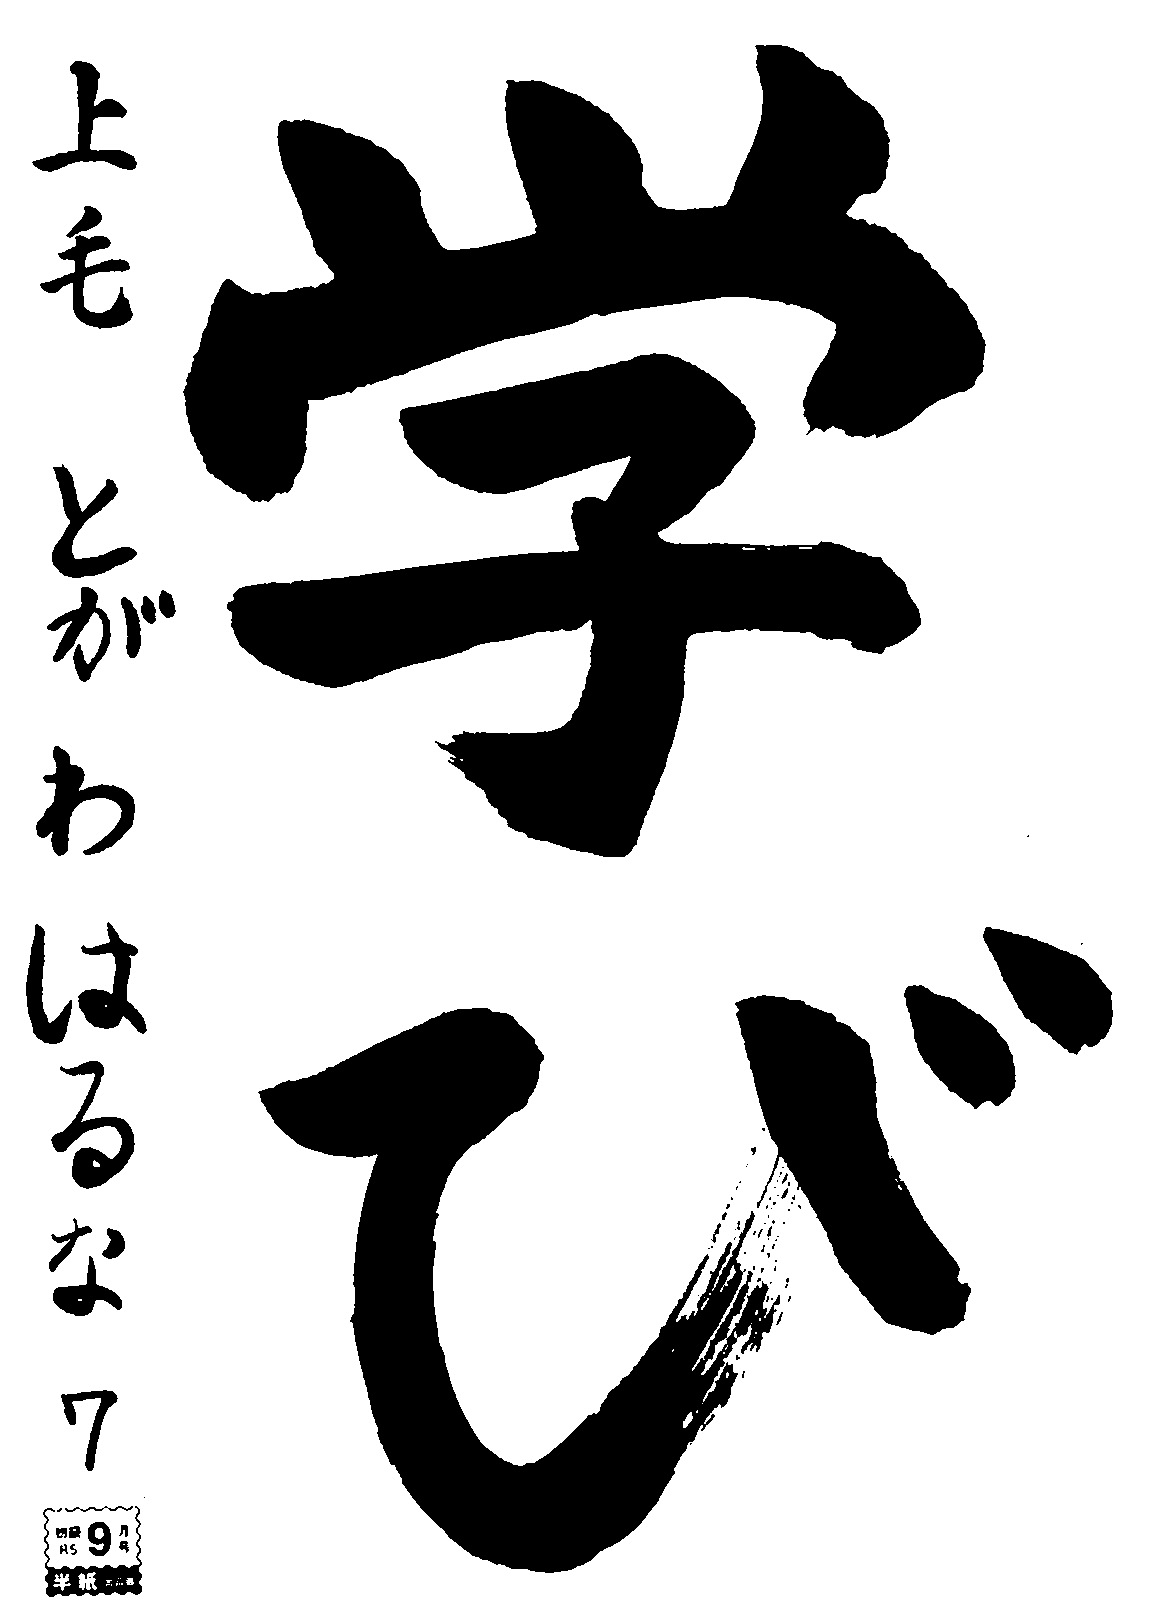 学び
上毛 とがわ はるな 7
9月号
半紙